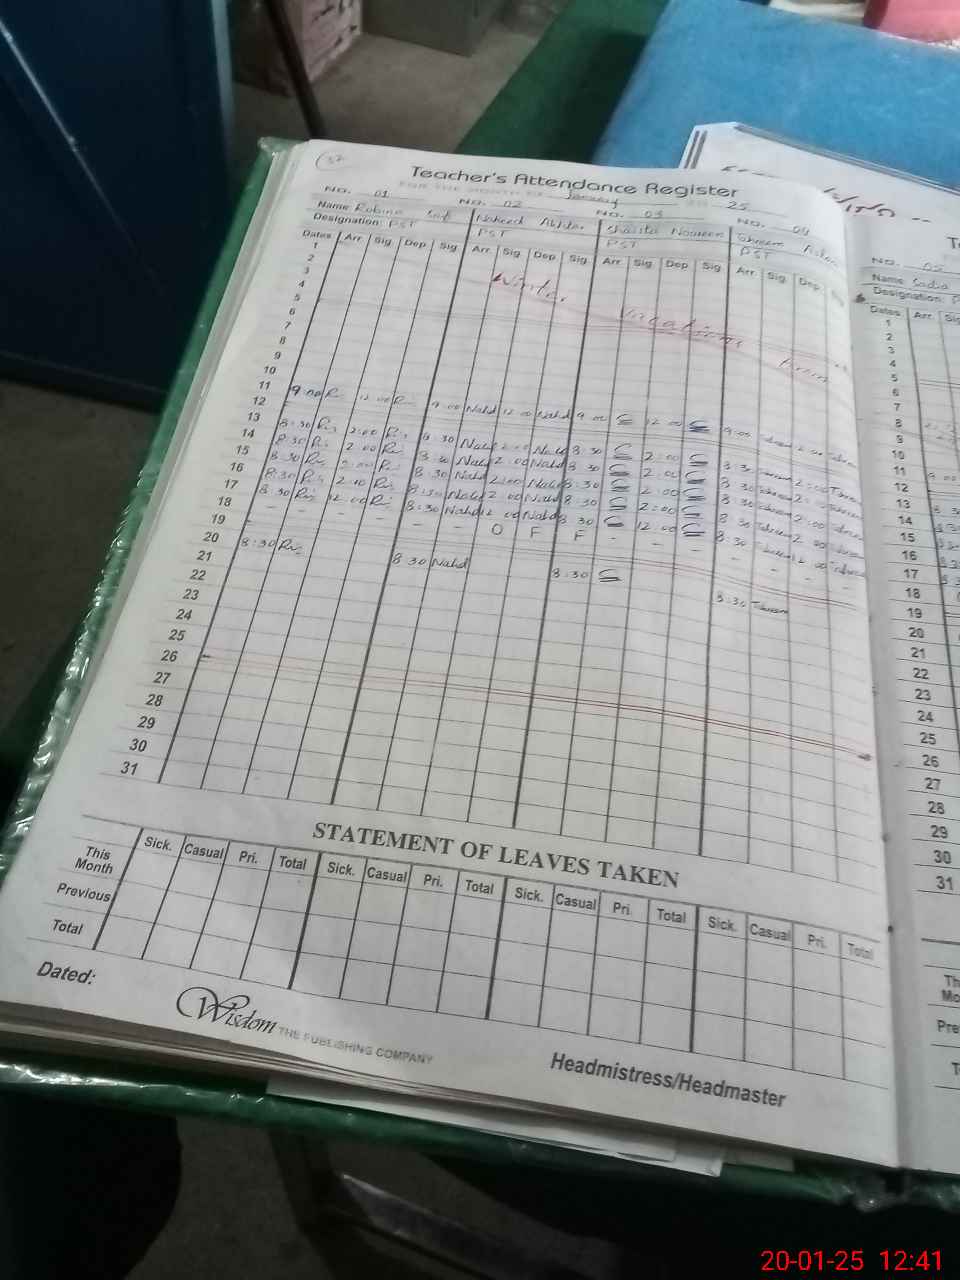 37
Teacher's Attendance Register
FOR THE MONTH OF January 20 25
NO. 01 NO. 02 NO. 03 NO. 04
Name Robina Naheed Akhtar Shaista Noureen
Designation: PST PST PST PST
Dates Arr. Sig. Dep. Sig Arr. Sig. Dep. Sig. Arr. Sig. Dep. Sig. Arr. Sig. Dep.
1
2
3 Winter Vacations From
4
5
6
7
8
9
10
11
12
13 9:00 12:00 9:00 Nahd 12:00 Nahd 9:00 12:00 9:00
14 8:30 2:00 8:30 Nahd 2:00 Nahd 8:30 2:00 8:30 2:00
15 8:30 2:00 8:30 Nahd 2:00 Nahd 8:30 2:00 8:30 2:00
16 8:30 2:00 8:30 Nahd 2:00 Nahd 8:30 2:00 8:30 2:00
17 8:30 2:00 8:30 Nahd 2:00 Nahd 8:30 2:00 8:30 2:00
18 8:30 12:00 8:30 Nahd 12:00 Nahd 8:30 12:00 8:30 12:00
19 - - - - - - O F F - - - - -
20 8:30 8:30 Nahd 8:30 8:30
21
22
23
24
25
26
27
28
29
30
31
STATEMENT OF LEAVES TAKEN
Sick. Casual Pri. Total Sick. Casual Pri. Total Sick. Casual Pri. Total Sick. Casual Pri. Total
This Month
Previous
Total
Dated:
Wisdom THE PUBLISHING COMPANY
Headmistress/Headmaster
NO. 05
Name Sadia
Designation:
Dates Arr.
1
2
3
4
5
6
7
8
9
10
11
12
13
14
15
16
17
18
19
20
21
22
23
24
25
26
27
28
29
30
31
20-01-25 12:41